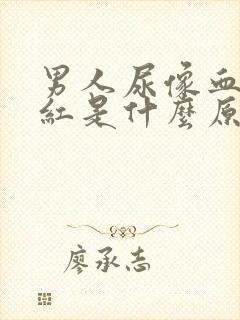 男人尿像血
紅是什麼原
廖承志